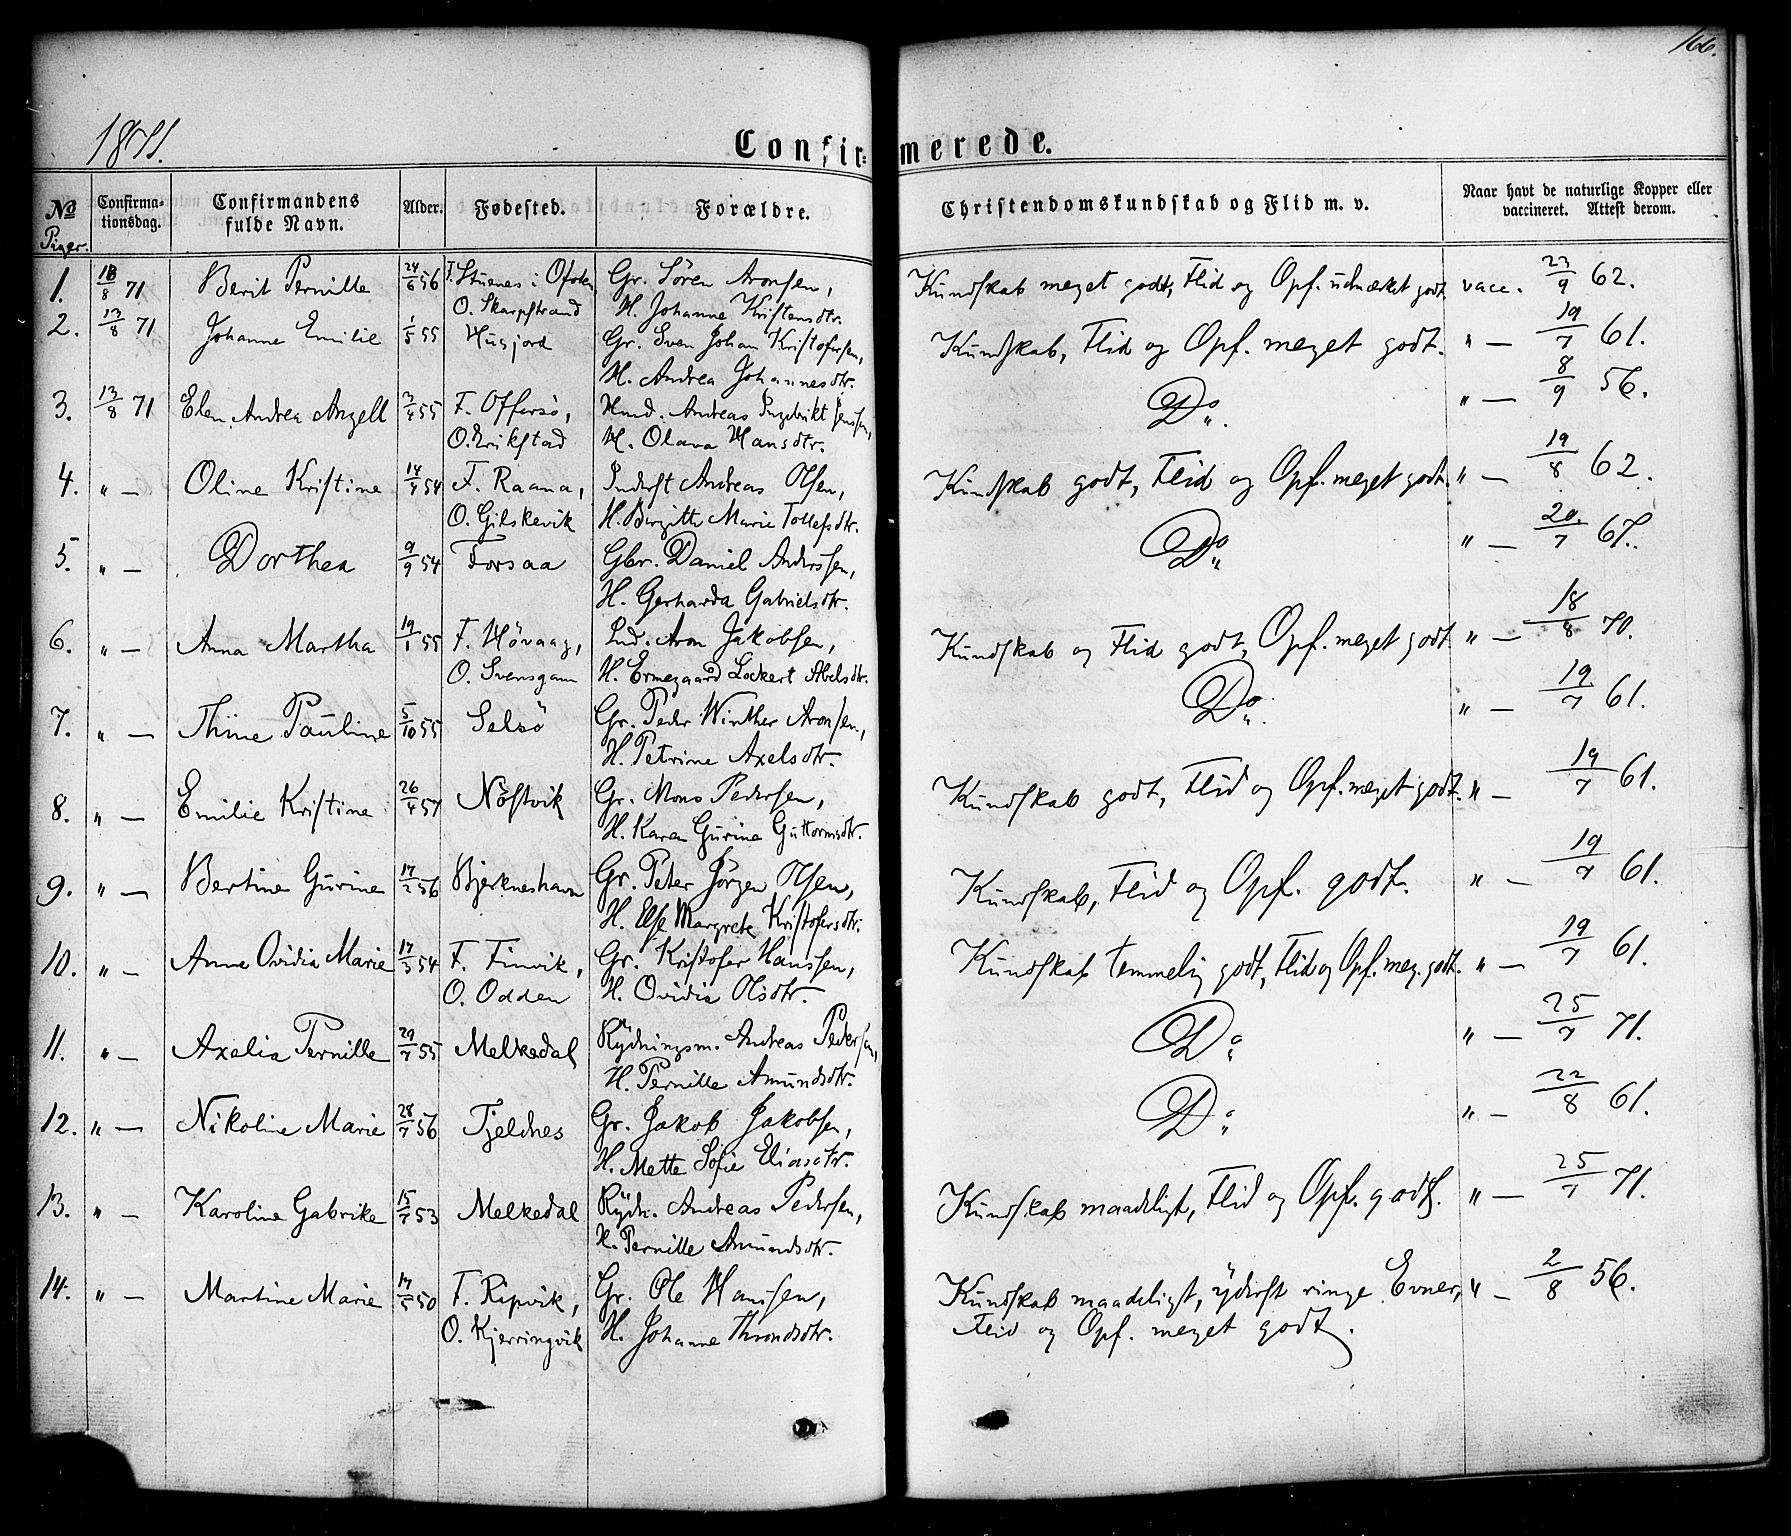 166.
1871.
Confir- merede.
No Piger.
Confirmationsdag.
Confirmandens fulde Navn.
Alder.
Fødested.
Forældre.
Christendomskundskab og Flid m. v.
Naar havt de naturlige Kopper eller vaccineret. Attest derom.
1. 13/8 71 Berit Pernille 24/6 56 F. Stuenes i Ofoten Gr. Sören Aronsen, Kundskab meget godt, Flid og Opf. udmærket godt. vacc. 23/9 62.
O. Skarpstrand H. Johanne Kristensdtr.
2. 13/8 71 Johanne Emilie 1/5 55 Husjord Gr. Sven Johan Kristofersen, Kundskab, Flid og Opf. meget godt. " — 19/7 61.
H. Andrea Johannesdtr.
3. 13/8 71 Elen Andrea Angell 3/4 55 F. Offersö, Hmd. Andreas Ingebrikt Jenssen, Do. " — 8/9 56.
O. Erikstad H. Olava Hansdtr.
4. " — Oline Kristine 14/4 54 F. Raana, Inderst Andreas Olsen, Kundskab godt, Flid og Opf. meget godt. " — 19/8 62.
O. Gilskevik H. Birgitte Marie Tollefsdtr.
5. " — Dorthea 9/9 54 Forsaa Gbr. Daniel Anderssen, Do " — 20/7 67.
H. Gerharda Gabrielsdtr.
6. " — Anna Martha 19/1 55 F. Hövaag, Ind. Aron Jakobsen, Kundskab og Flid godt, Opf. meget godt. " — 18/8 70.
O. Svensgam H. Ermegaard Lockert Abelsdtr.
7. " — Thine Pauline 5/10 55 Selsö Gr. Peder Winther Aronsen, Do. " — 19/7 61.
H. Petrine Axelsdtr.
8. " — Emilie Kristine 26/4 57 Nöstvik Gr. Mons Pedersen, Kundskab godt, Flid og Opf. meget godt. " — 19/7 61.
H. Karen Gurine Guttormsdtr.
9. " — Bertine Gurine 17/2 56 Bjerkneshavn Gr. Peter Jörgen Olsen, Kundskab, Flid og Opf. godt. " — 19/7 61.
H. Else Margrete Kristofersdtr.
10. " — Anne Ovidia Marie 17/3 54 F. Finvik, Gr. Kristofer Hanssen, Kundskab temmelig godt, Flid og Opf. meg. godt. " — 19/7 61.
O. Odden H. Ovidia Olsdtr.
11. " — Axelia Pernille 29/7 55 Melkedal Rydningsm. Andreas Pedersen, Do " — 25/7 71.
H. Pernille Amundsdtr.
12. " — Nikoline Marie 28/7 56 Tjeldnes Gr. Jakob Jakobsen, Do " — 22/8 61.
H. Mette Sofie Eliasdtr.
13. " — Karoline Gabrike 15/7 53 Melkedal Rydn. Andreas Pedersen, Kundskab maadeligt, Flid og Opf. godt. " — 25/7 71.
H. Pernille Amundsdtr.
14. " — Martine Marie 17/5 50 F. Ripvik, Gr. Ole Hanssen, Kundskab maadeligt, yderst ringe Evner, " — 2/8 56.
O. Kjerringvik H. Johanne Throndsdtr. Flid og Opf. meget godt.